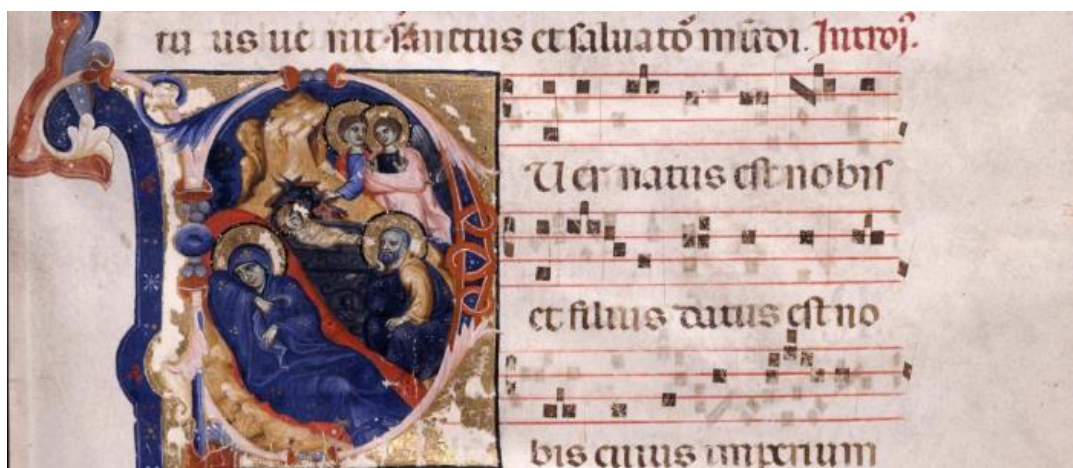 tu us ue nit sanctus et saluatō mūdi. Introỉ.
Uer natus est nobis
et filius datus est no
bis cuius imperium